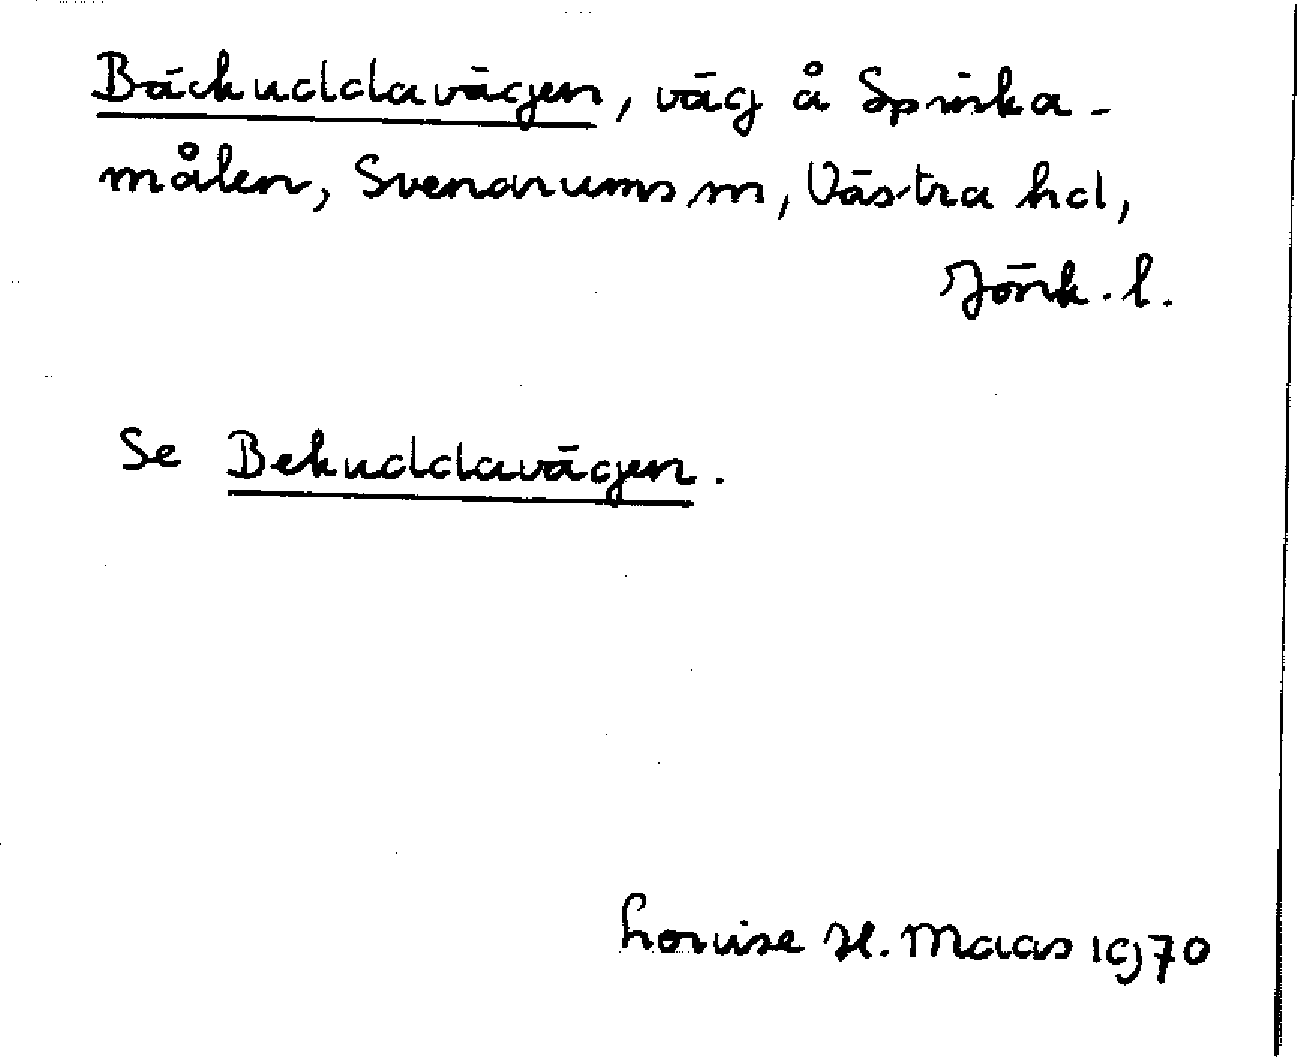 Bäckuddavägen, väg å Spinka-
målen, Svenarums sn, Västra hd,
Jönk. l.
Se Bekuddavägen.
Louise H. Maas 1970